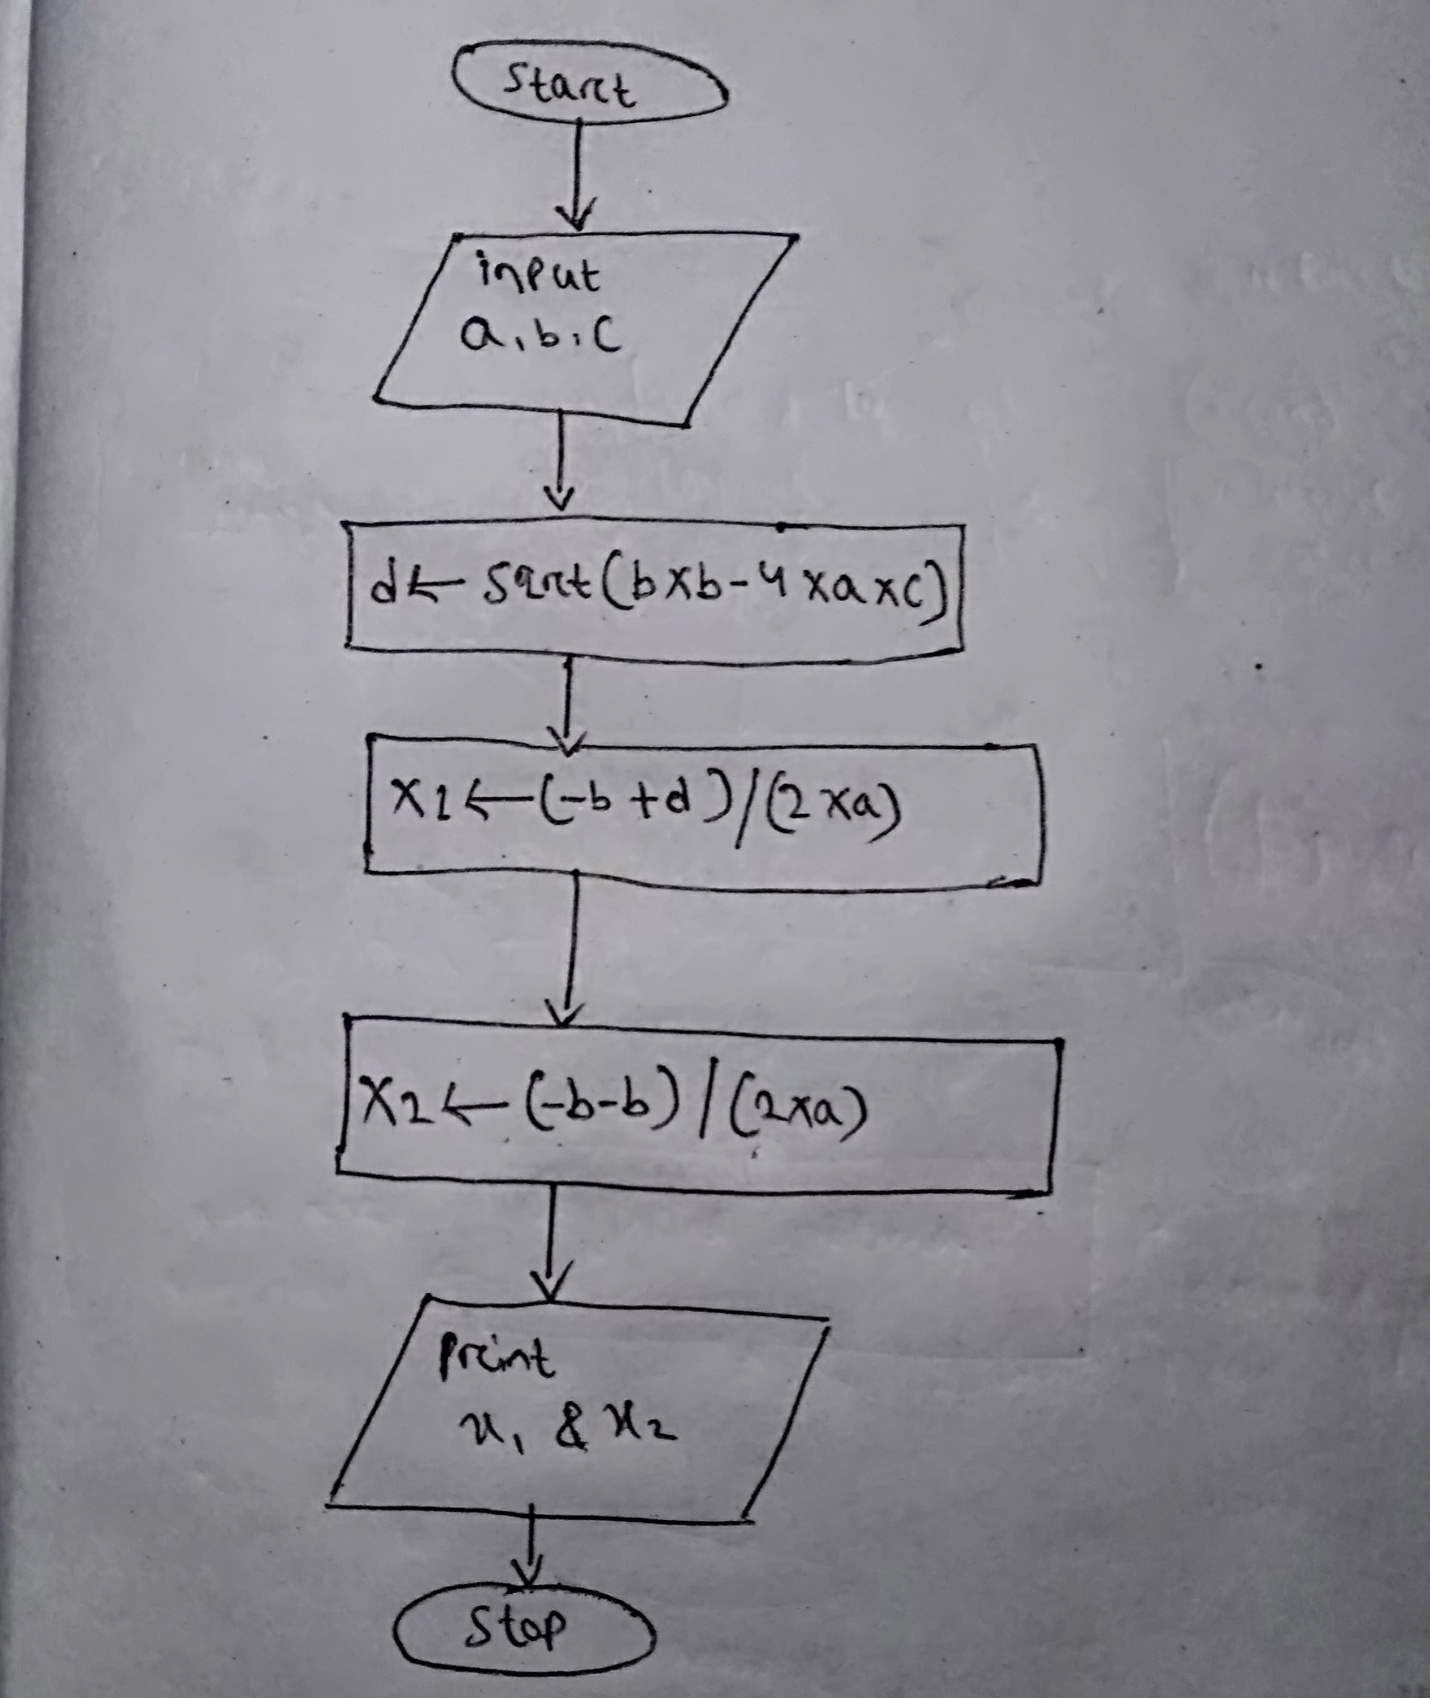 Start
input
a, b, c
d ← sqrt (b×b-4×a×c)
x1 ← (-b+d)/(2×a)
x2 ← (-b-b)/(2×a)
print
x1 & x2
Stop